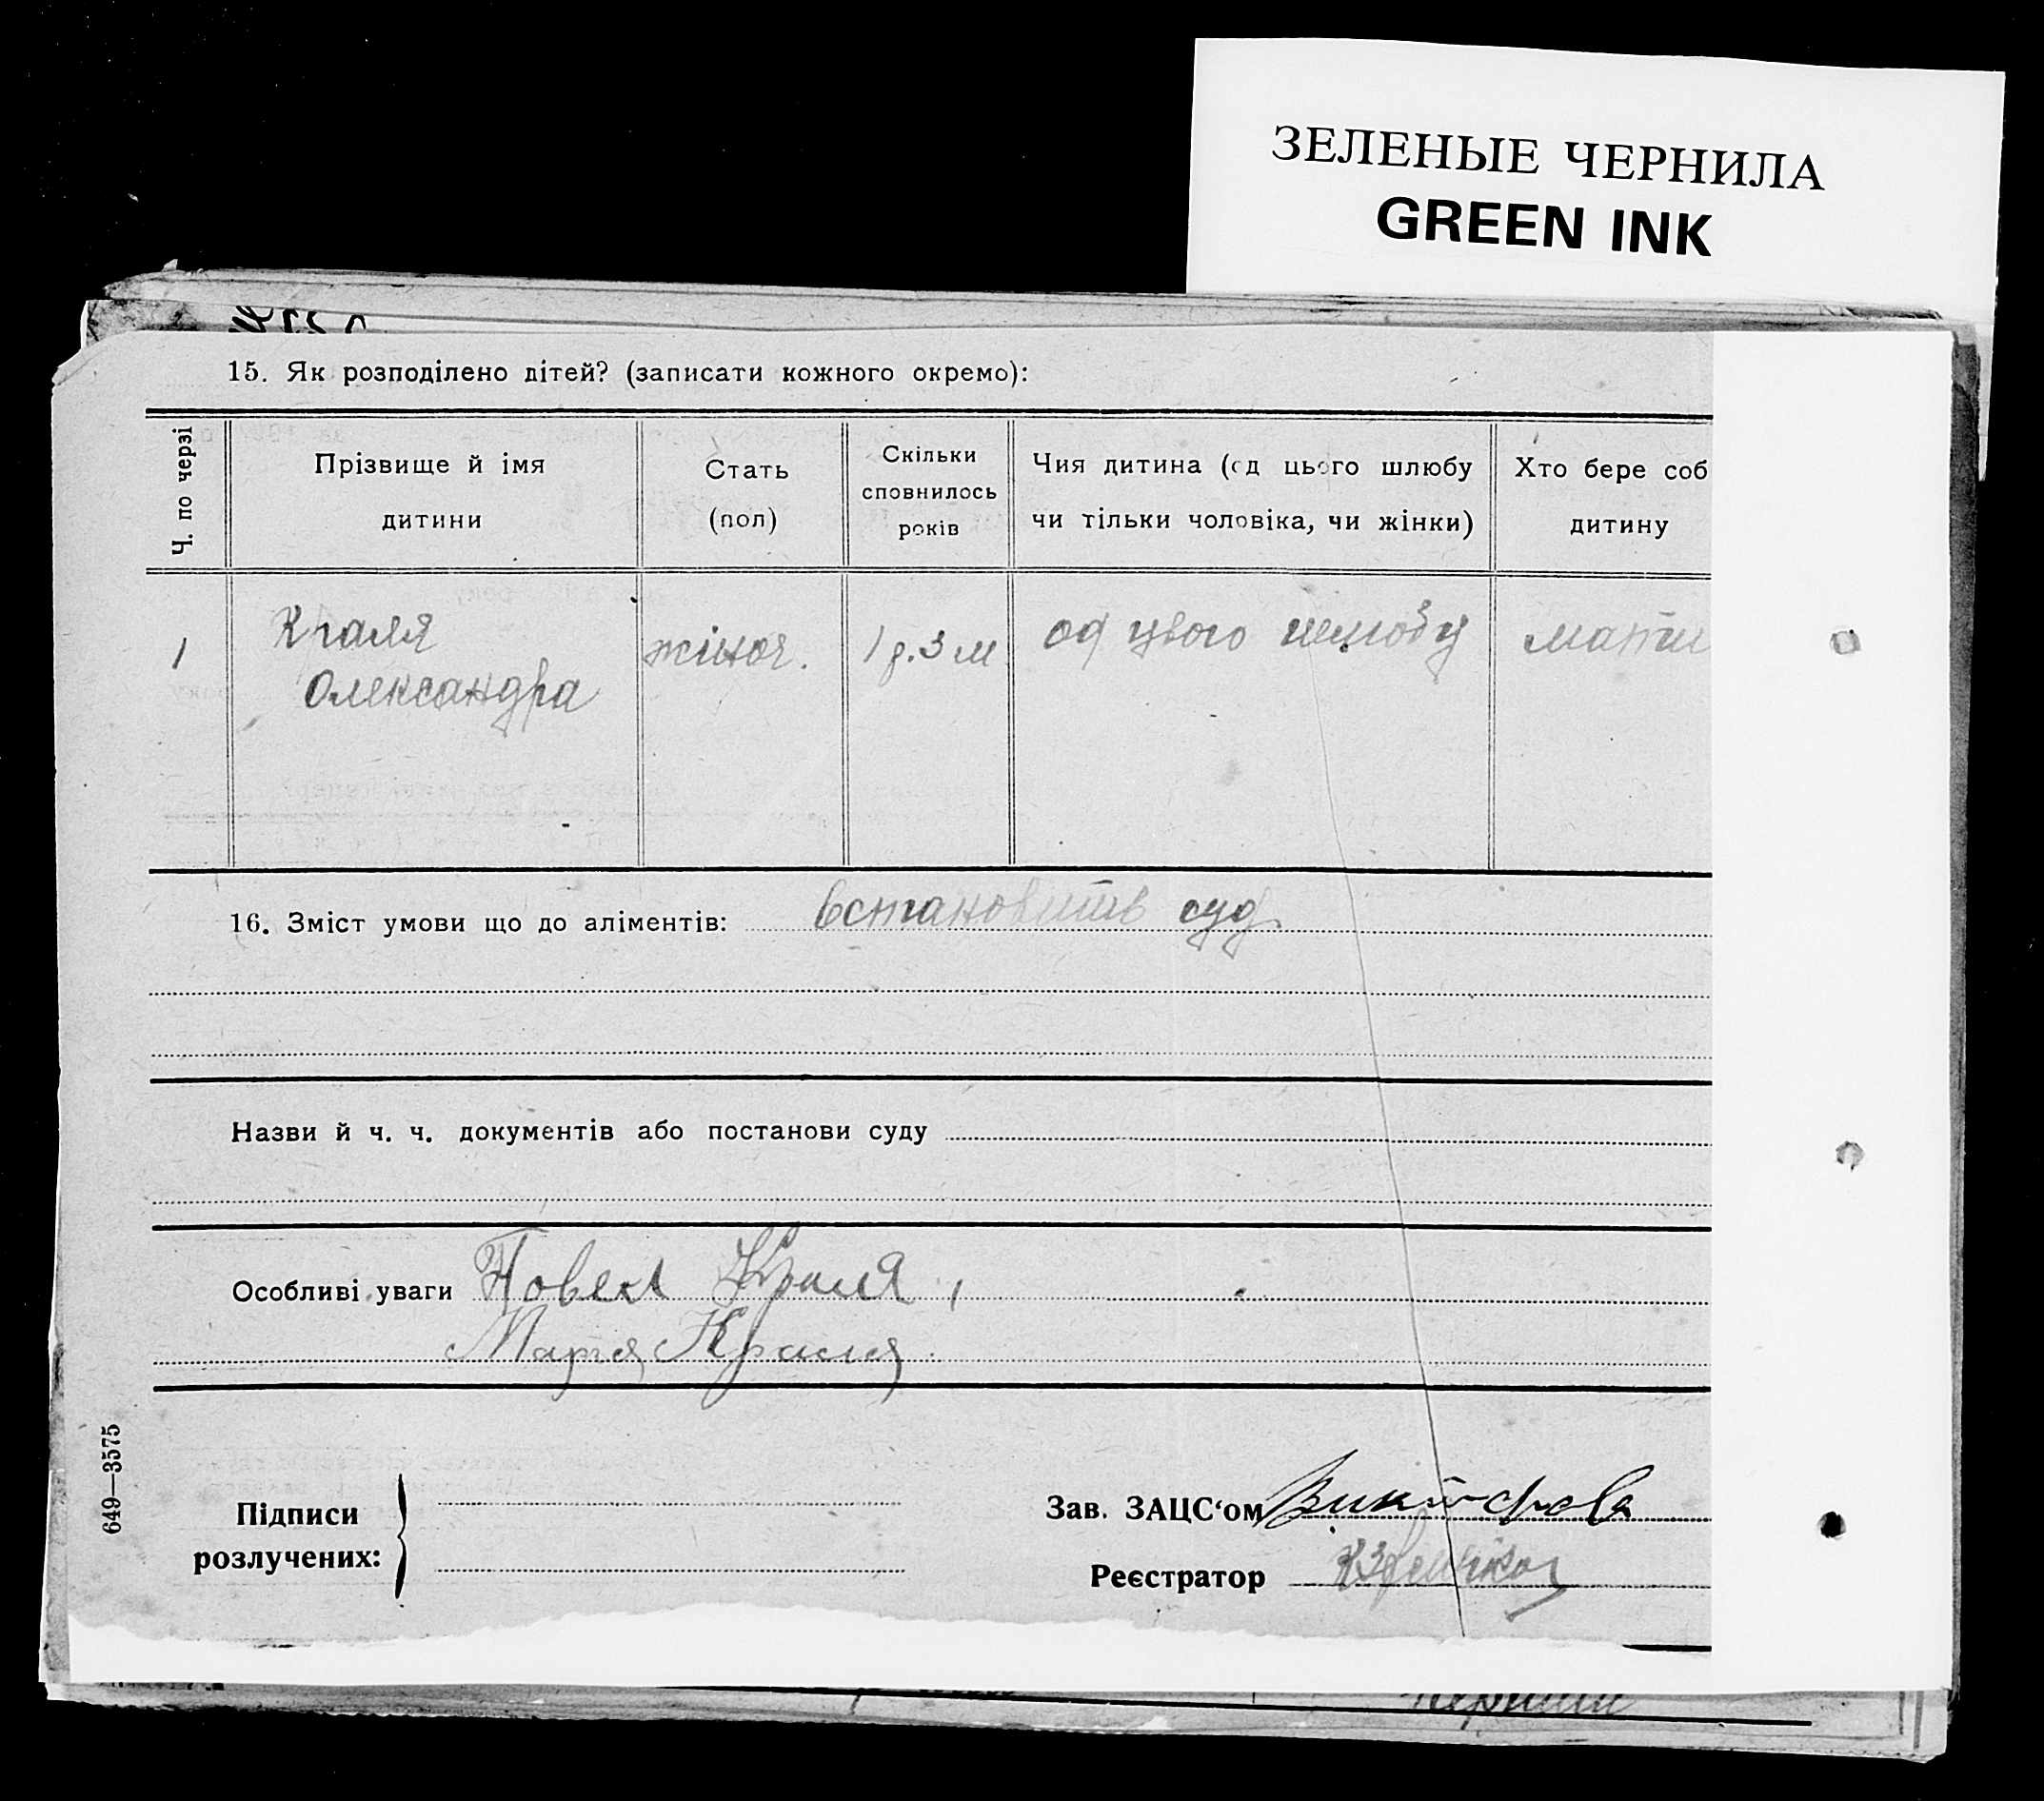 ЗЕЛЕНЫЕ ЧЕРНИЛА
GREEN INK
15. Як розподілено дітей? (записати кожного окремо):
Ч. по черзі
Прізвище й імя
дитини
Стать
(пол)
Скільки
сповнилось
років
Чия дитина (од цього шлюбу
чи тільки чоловіка, чи жінки)
Хто бере соб
дитину
1
Краля
Олександра
жіноч.
1 р. 3 м
од цього шлюбу
мати
16. Зміст умови що до аліментів: встановить суд
Назви й ч. ч. документів або постанови суду
Особливі уваги Повел Краля,
Мария Краля
649—3575
Підписи
розлучених:
Зав. ЗАЦС‘ом
Реєстратор